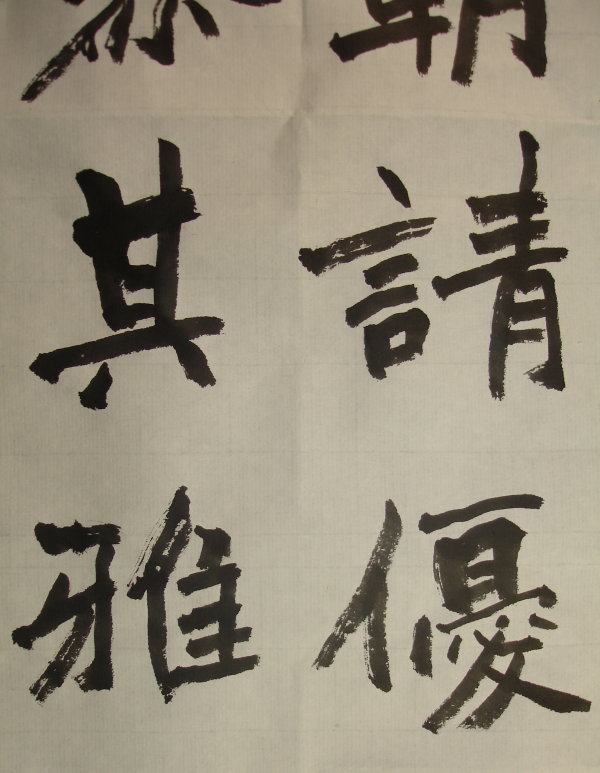 朝請優
慕其雅